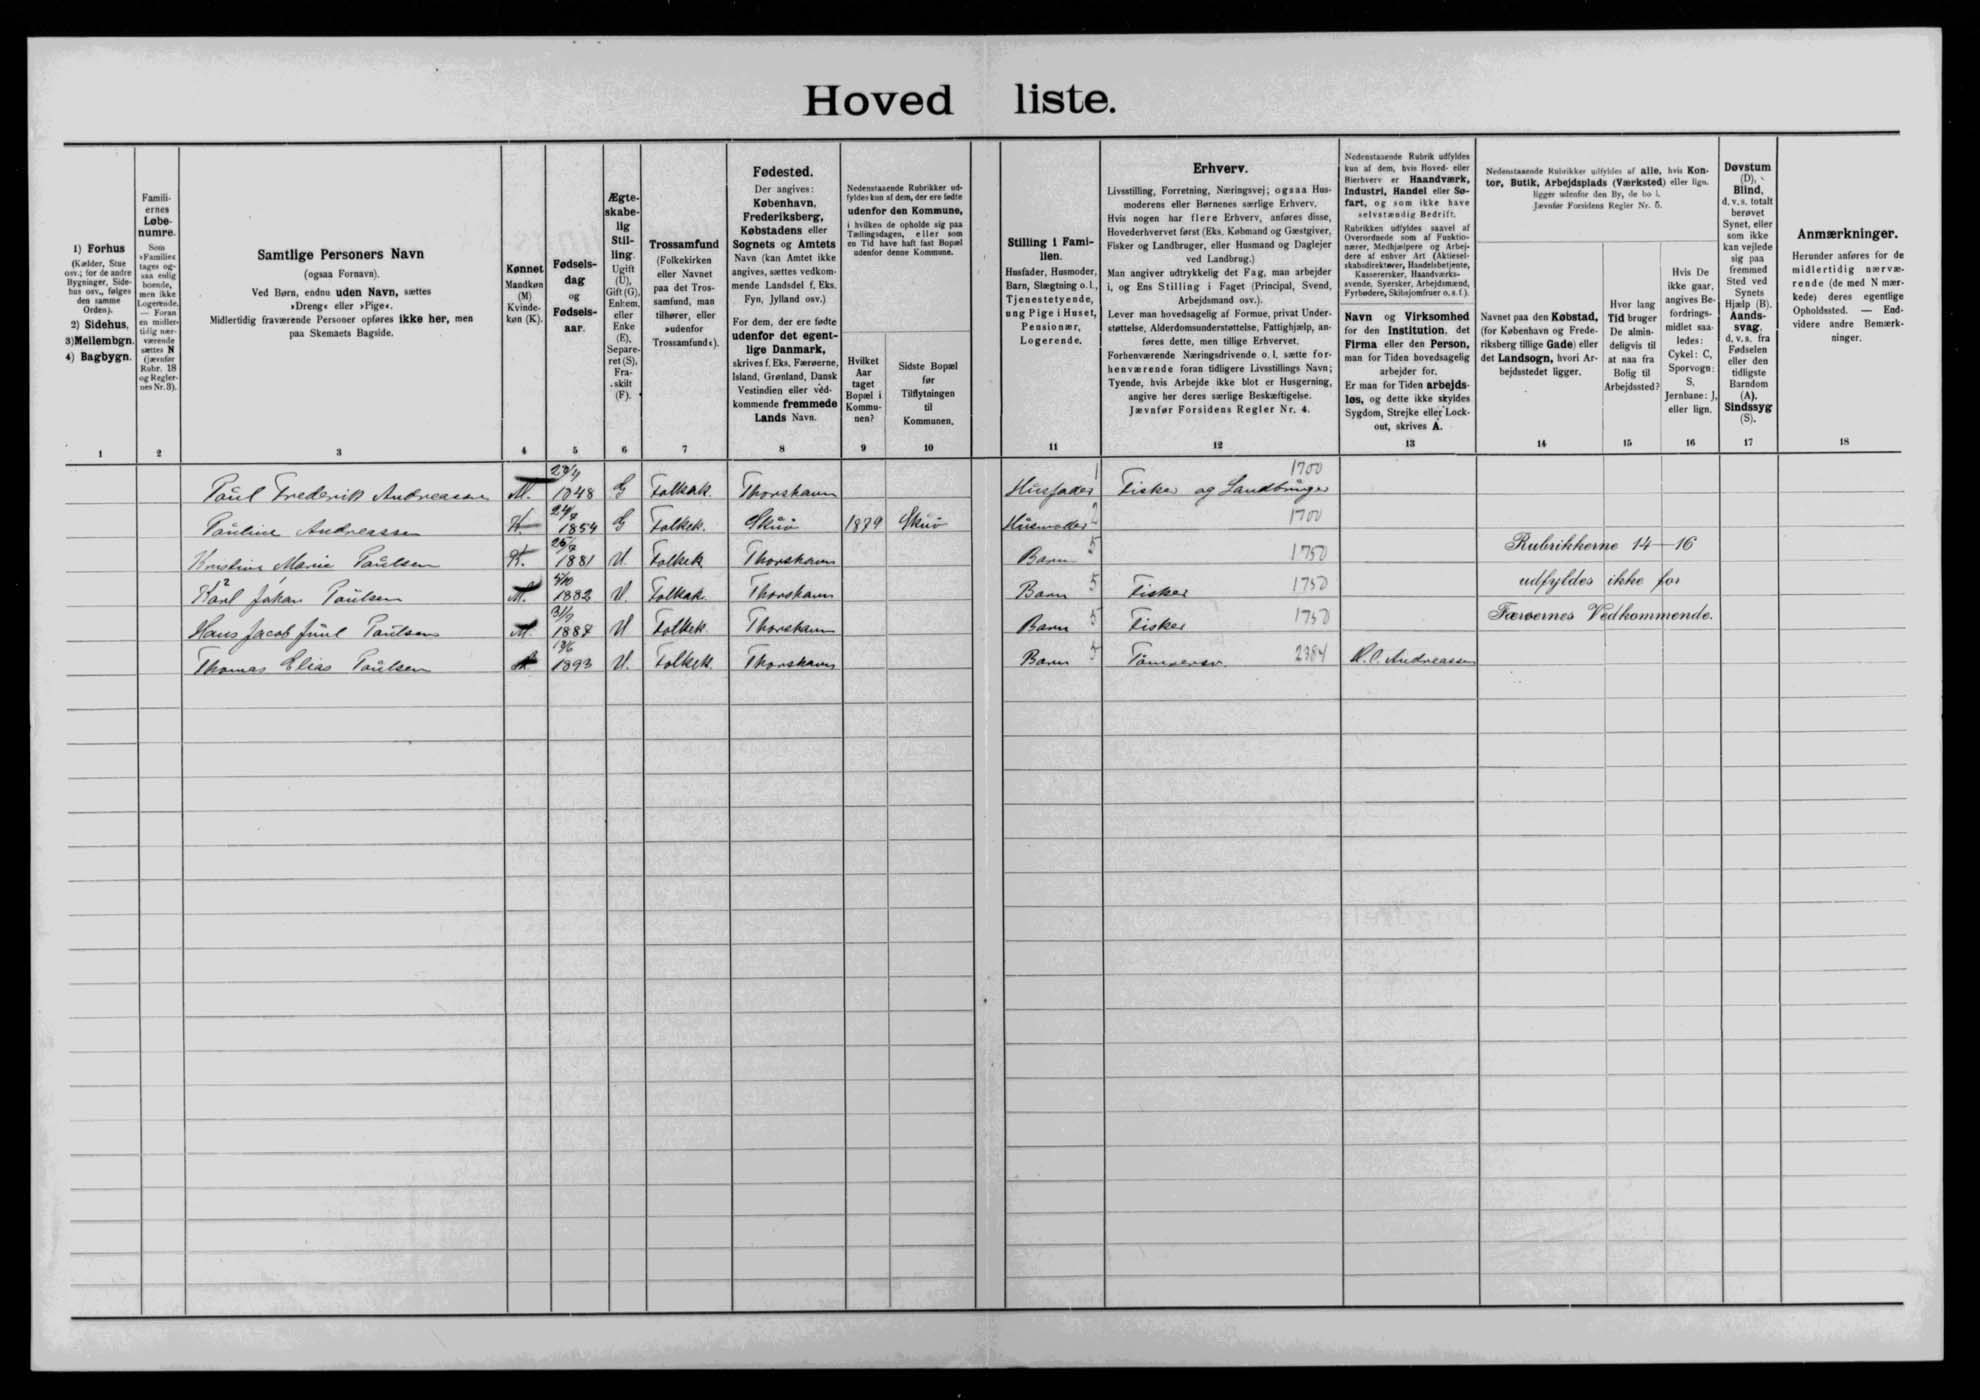 Hoved liste.
1) Forhus
(Kælder, Stue
osv.; for de andre
Bygninger, Side-
hus osv., følges
den samme
Orden).
2) Sidehus,
3) Mellembgn.
4) Bagbygn.
Famili-
ernes
Løbe-
numre.
Som
»Familie«
tages og-
saa enlig
boende,
men ikke
Logerende.
— Foran
en midler-
tidig nær-
værende
sættes N
(jævnfør
Rubr. 18
og Regler-
nes Nr. 3).
Samtlige Personers Navn
(ogsaa Fornavn).
Ved Børn, endnu uden Navn, sættes
»Dreng« eller »Pige«.
Midlertidig fraværende Personer opføres ikke her, men
paa Skemaets Bagside.
Kønnet
Mandkøn
(M)
Kvinde-
køn (K).
Fødsels-
dag
og
Fødsels-
aar.
Ægte-
skabe-
lig
Stil-
ling.
Ugift
(U),
Gift (G),
Enkem.
eller
Enke
(E),
Separe-
ret (S),
Fra-
skilt
(F).
Trossamfund
(Folkekirken
eller Navnet
paa det Tros-
samfund, man
tilhører, eller
»udenfor
Trossamfund«).
Fødested.
Der angives:
København,
Frederiksberg,
Købstadens eller
Sognets og Amtets
Navn (kan Amtet ikke
angives, sættes vedkom-
mende Landsdel f. Eks.
Fyn, Jylland osv.)
For dem, der ere fødte
udenfor det egent-
lige Danmark,
skrives f. Eks. Færøerne,
Island, Grønland, Dansk
Vestindien eller ved-
kommende fremmede
Lands Navn.
Nedenstaaende Rubrikker ud-
fyldes kun af dem, der ere fødte
udenfor den Kommune,
i hvilken de opholde sig paa
Tællingsdagen, eller som
en Tid have haft fast Bopæl
udenfor denne Kommune.
Hvilket
Aar
taget
Bopæl i
Kommu-
nen?
Sidste Bopæl
før
Tilflytningen
til
Kommunen.
Stilling i Fami-
lien.
Husfader, Husmoder,
Barn, Slægtning o. l.,
Tjenestetyende,
ung Pige i Huset,
Pensionær,
Logerende.
Erhverv.
Livsstilling, Forretning, Næringsvej; ogsaa Hus-
moderens eller Børnenes særlige Erhverv.
Hvis nogen har flere Erhverv, anføres disse,
Hovederhvervet først (Eks. Købmand og Gæstgiver,
Fisker og Landbruger, eller Husmand og Daglejer
ved Landbrug.)
Man angiver udtrykkelig det Fag, man arbejder
i, og Ens Stilling i Faget (Principal, Svend,
Arbejdsmand osv.).
Lever man hovedsagelig af Formue, privat Under-
støttelse, Alderdomsunderstøttelse, Fattighjælp, an-
føres dette, men tillige Erhvervet.
Forhenværende Næringsdrivende o. l. sætte for-
henværende foran tidligere Livsstillings Navn;
Tyende, hvis Arbejde ikke blot er Husgerning,
angive her deres særlige Beskæftigelse.
Jævnfør Forsidens Regler Nr. 4.
Nedenstaaende Rubrik udfyldes
kun af dem, hvis Hoved- eller
Bierhverv er Haandværk,
Industri, Handel eller Sø-
fart, og som ikke have
selvstændig Bedrift.
Rubrikken udfyldes saavel af
Overordnede som af Funktio-
nærer, Medhjælpere og Arbej-
dere af enhver Art (Aktiesel-
skabsdirektører, Handelsbetjente,
Kassererske, Haandværks-
svende, Syersker, Arbejdsmænd,
Fyrbødere, Skibsjomfruer o. s. f.).
Navn og Virksomhed
for den Institution, det
Firma eller den Person,
man for Tiden hovedsagelig
arbejder for.
Er man for Tiden arbejds-
løs, og dette ikke skyldes
Sygdom, Strejke eller Lock-
out, skrives A.
Nedenstaaende Rubrikker udfyldes af alle, hvis Kon-
tor, Butik, Arbejdsplads (Værksted) eller lign.
ligger udenfor den By, de bo i.
Jævnfør Forsidens Regler Nr. 5.
Navnet paa den Købstad,
(for København og Frede-
riksberg tillige Gade) eller
det Landsogn, hvori Ar-
bejdsstedet ligger.
Hvor lang
Tid bruger
De almin-
deligvis til
at naa fra
Bolig til
Arbejdssted?
Hvis De
ikke gaar,
angives Be-
fordrings-
midlet saa-
ledes:
Cykel: C,
Sporvogn:
S,
Jernbane: J,
eller lign.
Døvstum
(D),
Blind,
d. v. s. totalt
berøvet
Synet, eller
som ikke
kan vejlede
sig paa
fremmed
Sted ved
Synets
Hjælp (B).
Aands-
svag,
d. v. s. fra
Fødselen
eller den
tidligste
Barndom
(A).
Sindssyg
(S).
Anmærkninger.
Herunder anføres for de
midlertidig nærvæ-
rende (de med N mær-
kede) deres egentlige
Opholdssted. — End-
videre andre Bemærk-
ninger.
1 2 3 4 5 6 7 8 9 10 11 12 13 14 15 16 17 18
Paul Frederik Andreassen M. 1848 G Folkek. Thorshavn Husfader 1 Fisker og Landbruger 1700
Pauline Andreassen K. 1854 G Folkek. Skuø 1879 Skuø Husmoder 2 1700
Kristine Marie Paulsen K. 1881 U. Folkek Thorshavn Barn 5 1750 Rubrikkerne 14–16
Karl Johan Paulsen M. 1882 U. Folkek. Thorshavn Barn 5 Fisker 1750 udfyldes ikke for
Hans Jacob Juul Paulsen M. 1887 U Folkek. Thorshavn Barn 5 Fisker 1750 Færøernes Vedkommende.
Thomas Elias Paulsen 1893 U. Folkek. Thorshavn Barn 5 Tømrersv. 2384 Andreassen